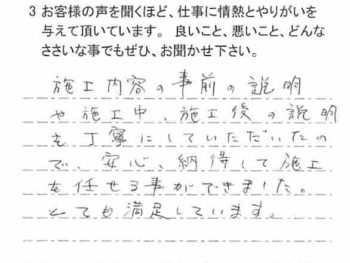 3 お客様の声を聞くほど、仕事に情熱とやりがいを
与えて頂いています。 良いこと、悪いこと、どんな
ささいな事でもぜひ、お聞かせ下さい。
施工内容の事前の説明
や施工中、施工後の説明
も丁寧にしていただいたの
で、安心、納得して施工
を任せる事ができました。
とても満足しています。